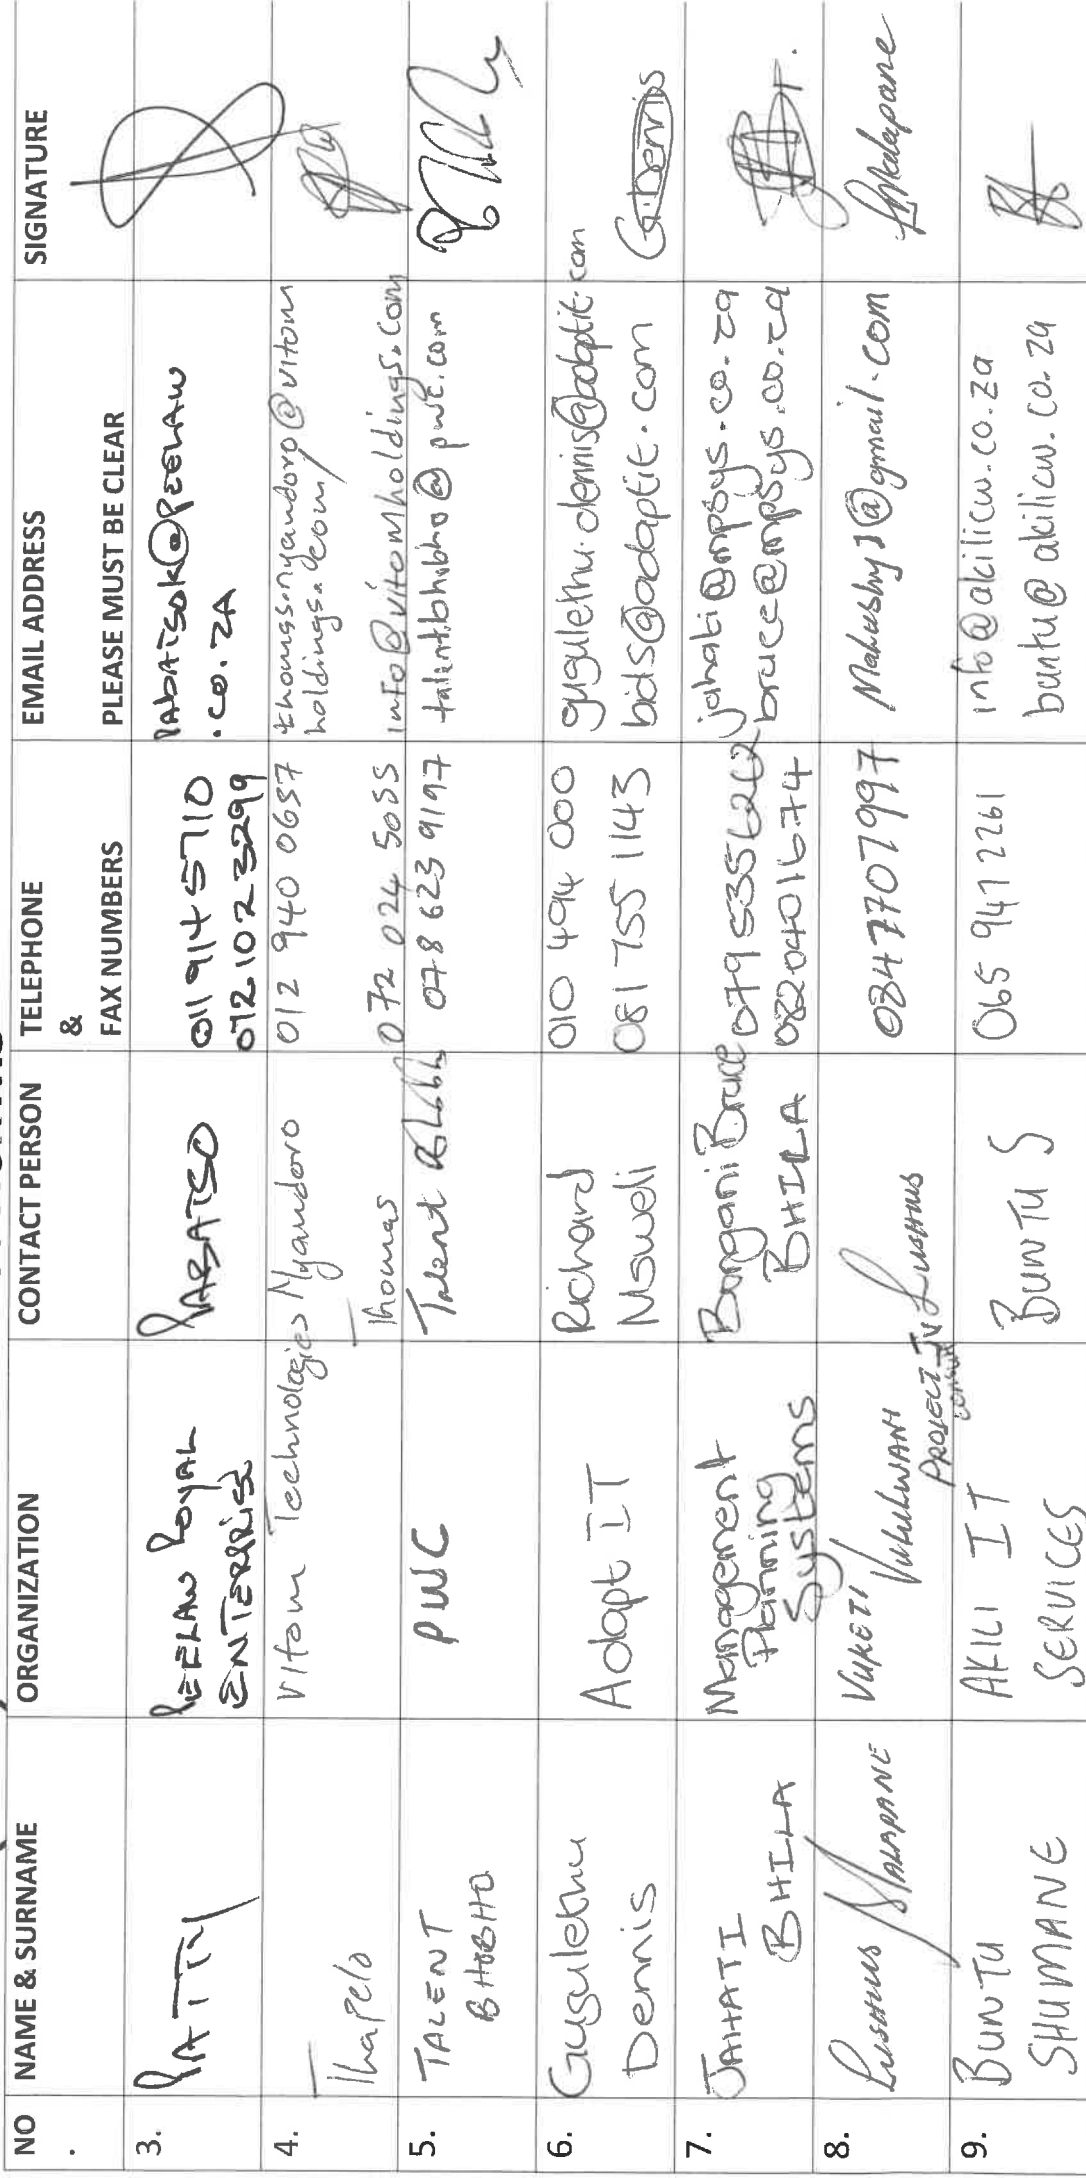 NO. NAME & SURNAME ORGANIZATION CONTACT PERSON TELEPHONE & FAX NUMBERS EMAIL ADDRESS PLEASE MUST BE CLEAR SIGNATURE
3. PATTY
PEELAW ROYAL
ENTERPRISE
PABATSO
011 914 5710
072 102 3299
PABATSOK@PEELAW
.CO.ZA
4. Thapelo
Vitom Technologies
Nyandoro
Thomas
012 940 0657
072 024 5055
thomas.nyandoro@vitom
holdings.com
info@vitomholdings.com
5. TALENT
BHOBHO
PWC
Talent
078 623 9197
talent.bhobho@pwc.com
6. Gugulethu
Dennis
Adapt IT
Richard
Nsweli
010 494 000
081 755 1143
gugulethu.dennis@adaptit.com
bids@adaptit.com
G.Dennis
7. JAHATI
BHILA
Management
Planning
Systems
Bongani Bruce
BHILA
079 5356262
0820401674
jahati@mpsys.co.za
bruce@mpsys.co.za
8. Lushus MALAPANE
VUKETI
PROJECT JV
Lushus
0847707997
@gmail.com
Malapane
9. BUNTU
SHUMANE
AKILI IT
SERVICES
BUNTU S
065 947 2261
info@akilicw.co.za
buntu@akilicw.co.za